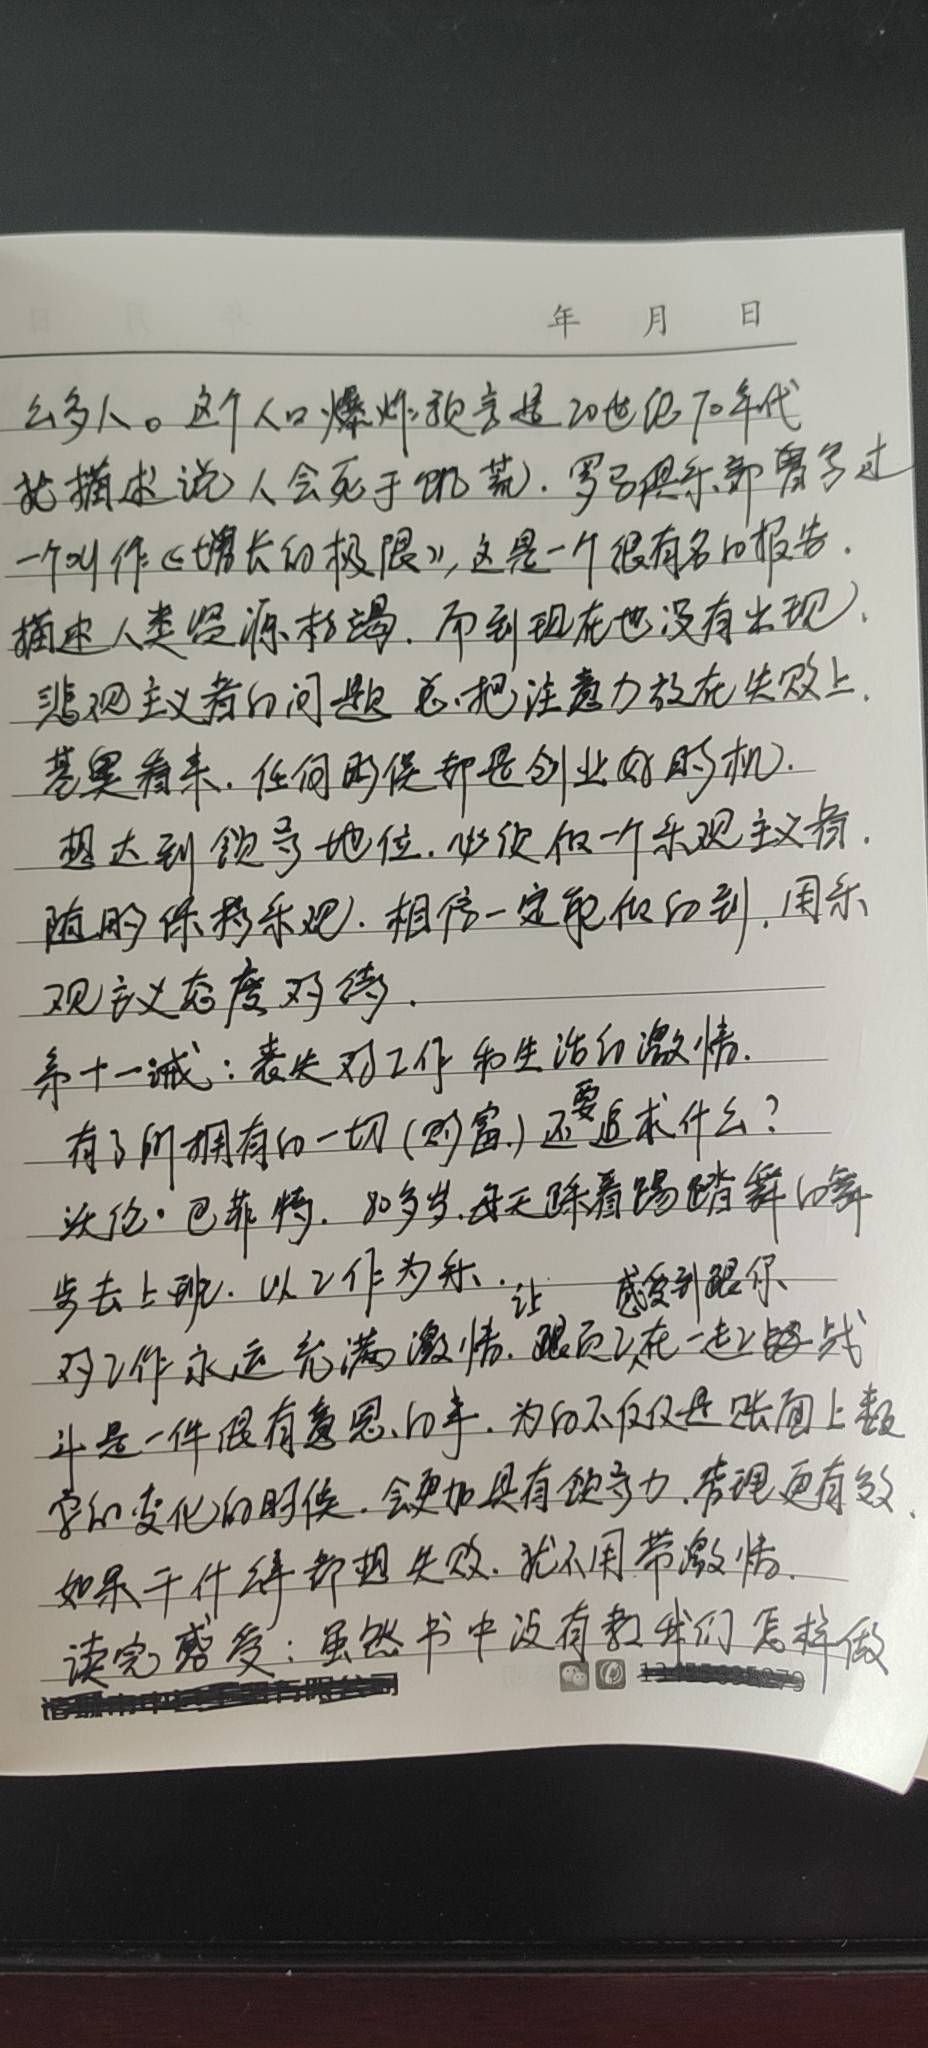 年 月 日
么多人。这个人口爆炸预言是20世纪70年代
就描述说人会死于饥荒.罗马俱乐部曾写过
一个叫作《增长的极限》,这是一个很有名的报告.
描述人类资源枯竭.而到现在也没有出现.
悲观主义者的问题总把注意力放在失败上.
基奥看来.任何时候都是创业好时机.
想达到领导地位.必须做一个乐观主义者.
随时保持乐观.相信一定能做的到.用乐
观主义态度对待.
第十一诫:丧失对工作和生活的激情.
有了所拥有的一切(财富.)还要追求什么?
沃伦·巴菲特.80多岁.每天踩着踢踏舞的舞
步去上班.以工作为乐.
对工作永远充满激情.让跟员工在一起感受到跟你战
斗是一件很有意思的事.为的不仅仅是账面上数
字的变化的时候.会更加具有领导力.管理更有效.
如果干什么事都想失败.就不用带激情.
读完感受:虽然书中没有教我们怎样做